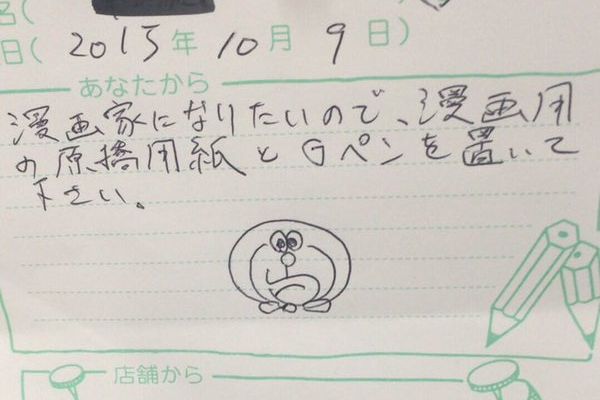 名(
日( 2015年 10月 9日)
あなたから
漫画家になりたいので、漫画用
の原稿用紙とGペンを置いて
下さい。
店舗から